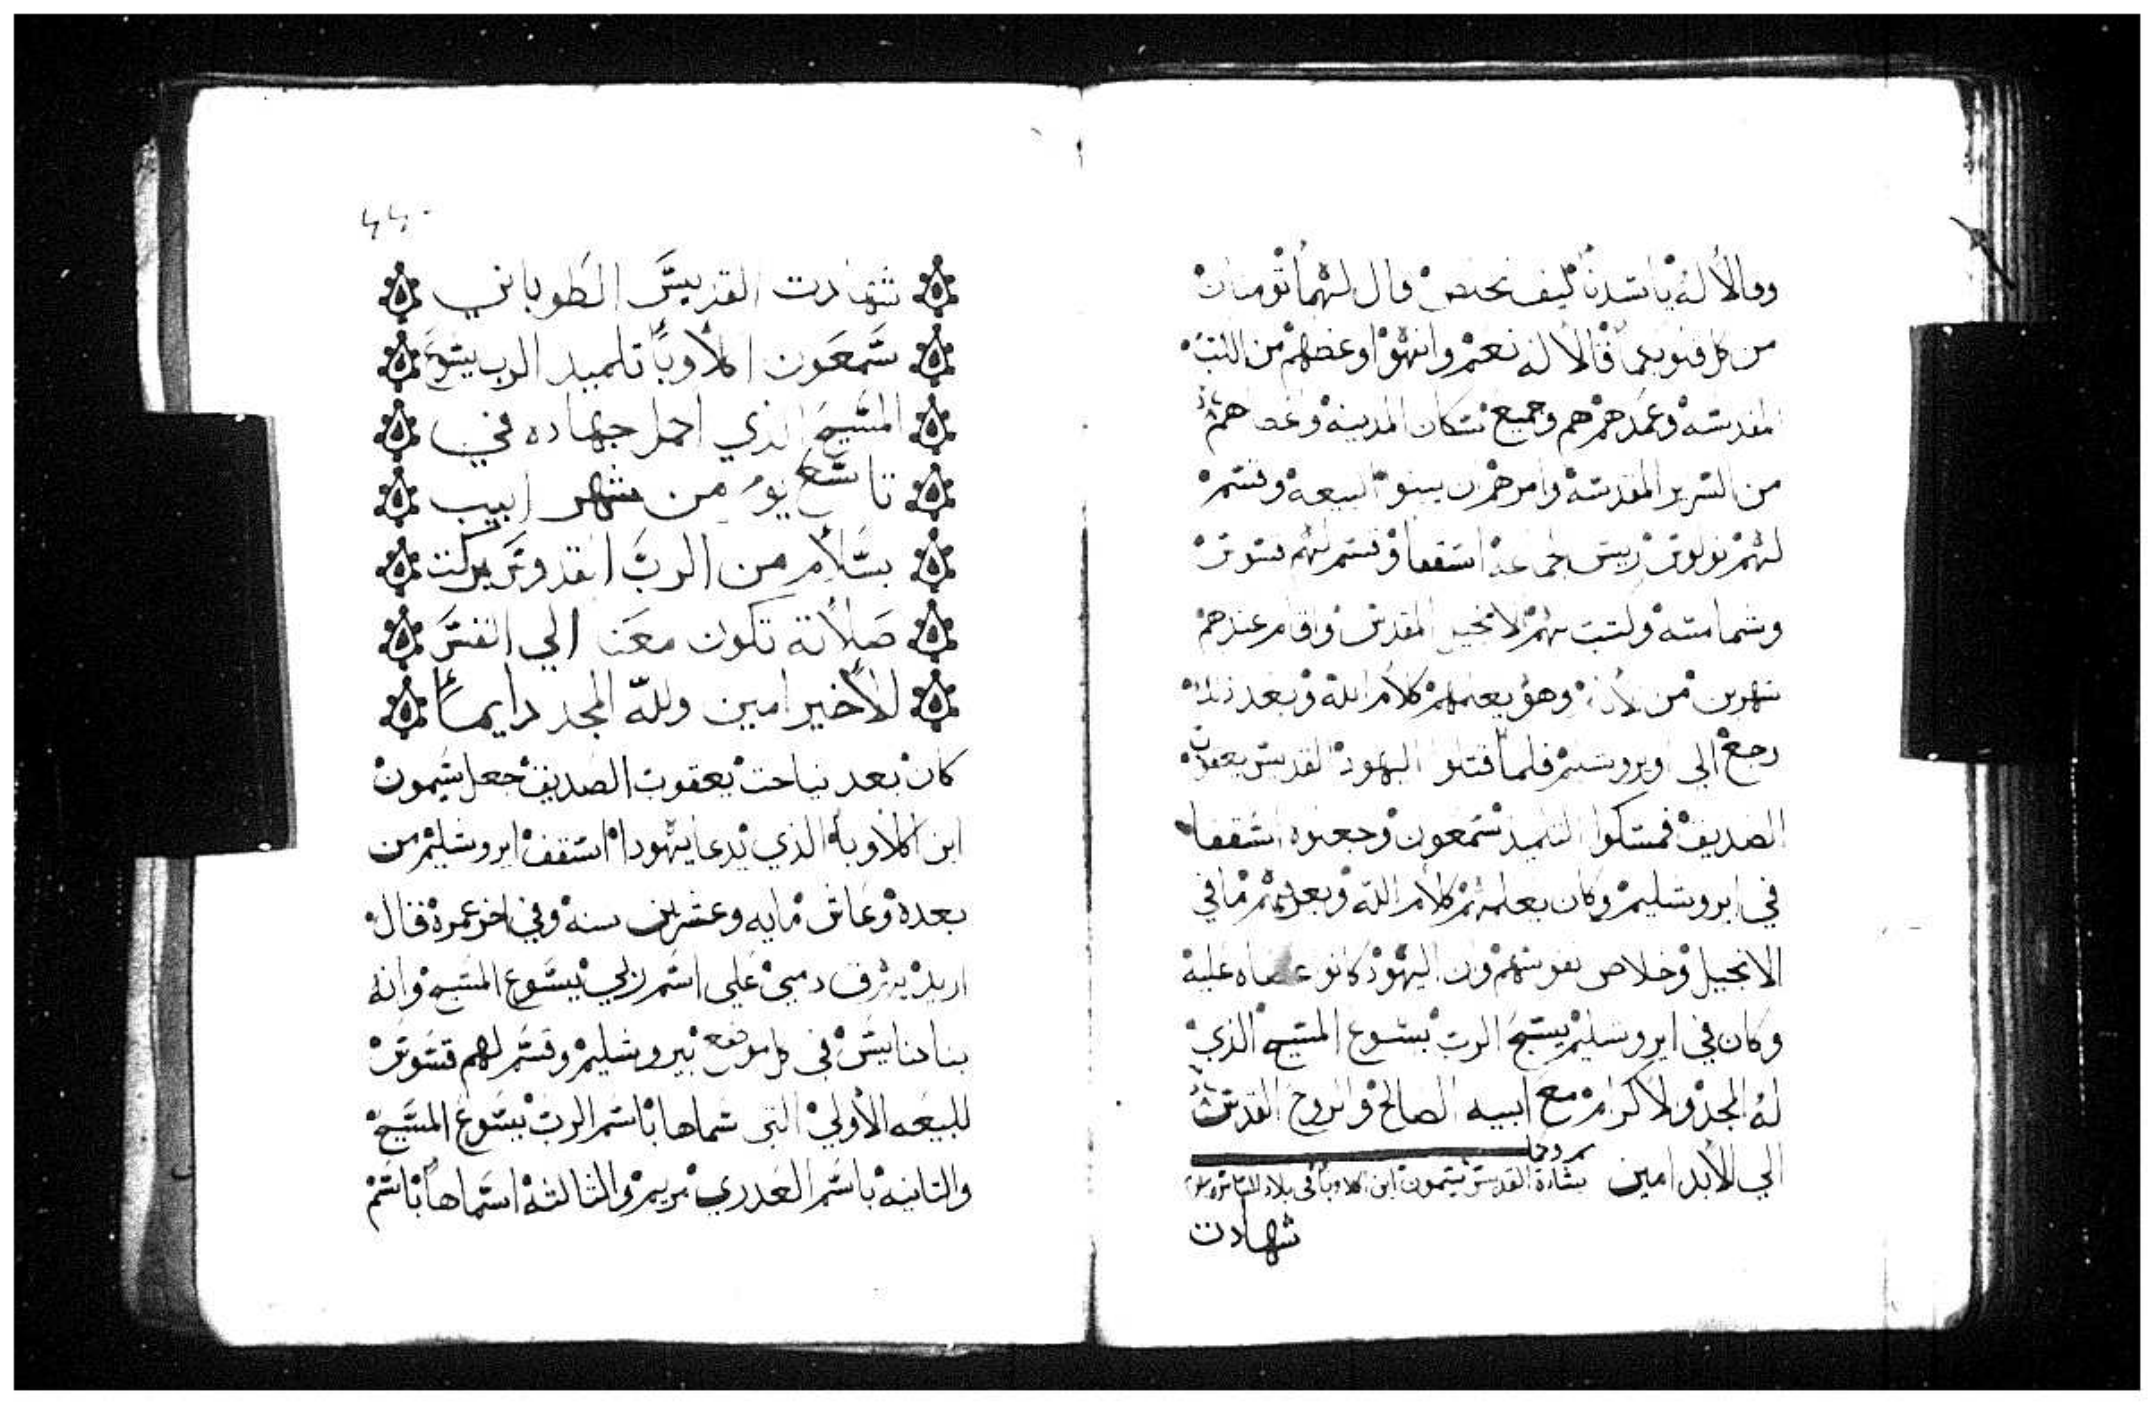 وقالا له ياسيدنا كيف نخلص قال لهما تومنان
من كل قلوبكما قالا له نعم وانهوا وعضهم من الكتب
المقدسه وعمدهم هم وجميع سكان المدينه واعطاهم
من السراير المقدسه وامرهم ان يبنوا البيعه وقسم
لهم ريس اسقفا وقسم لهم قسوس
وشمامسه وكتب لهم الانجيل المقدس واقام عندهم
شهرين من وهو يعلمهم كلام الله وبعد ذلك
رجع الي اويروشليم فلما قتلو اليهود القديس يعقوب
الصديق فمسكوا التلميذ سمعون وجعلوه اسقفا
في ايروشليم وكان يعلمهم كلام الله ويعلمهم ما في
الانجيل وخلاص نفوسهم وان اليهود كانو عليه
وكان في ايروشليم يسبح الرب يسوع المسيح الذي
له المجد والاكرام مع ابيه الصالح والروح القدس
الي الأبد امين
بشارة القديس سيمون ابن اكلاوبا في بلاد
شهادت
شهادت القديس الطوباني
سمعون اكلاوبا تلميد الرب يسوع
المسيح الذي اكمل جهاده في
تاسع يوم من شهر ابيب
بسلام من الرب القدوس بركت
صلاته تكون معنا الي النفس
الأخير امين ولله المجد دايما
كان بعد نياحت يعقوب الصديق جعل سيمون
ابن اكلاوبا الذي يدعا يهودا اسقف ايروشليم من
بعده وعاش مايه وعشرين سنه وفي اخر عمره قال
اريد يهرق دمي على اسم ربي يسوع المسيح وانه
بنا كنايس في كل موضع بيروشليم وقسم لهم قسوس
للبيعه الأولي التى سماها باسم الرب يسوع المسيح
والتانيه باسم العدري مريم والثالثه اسماها باسم